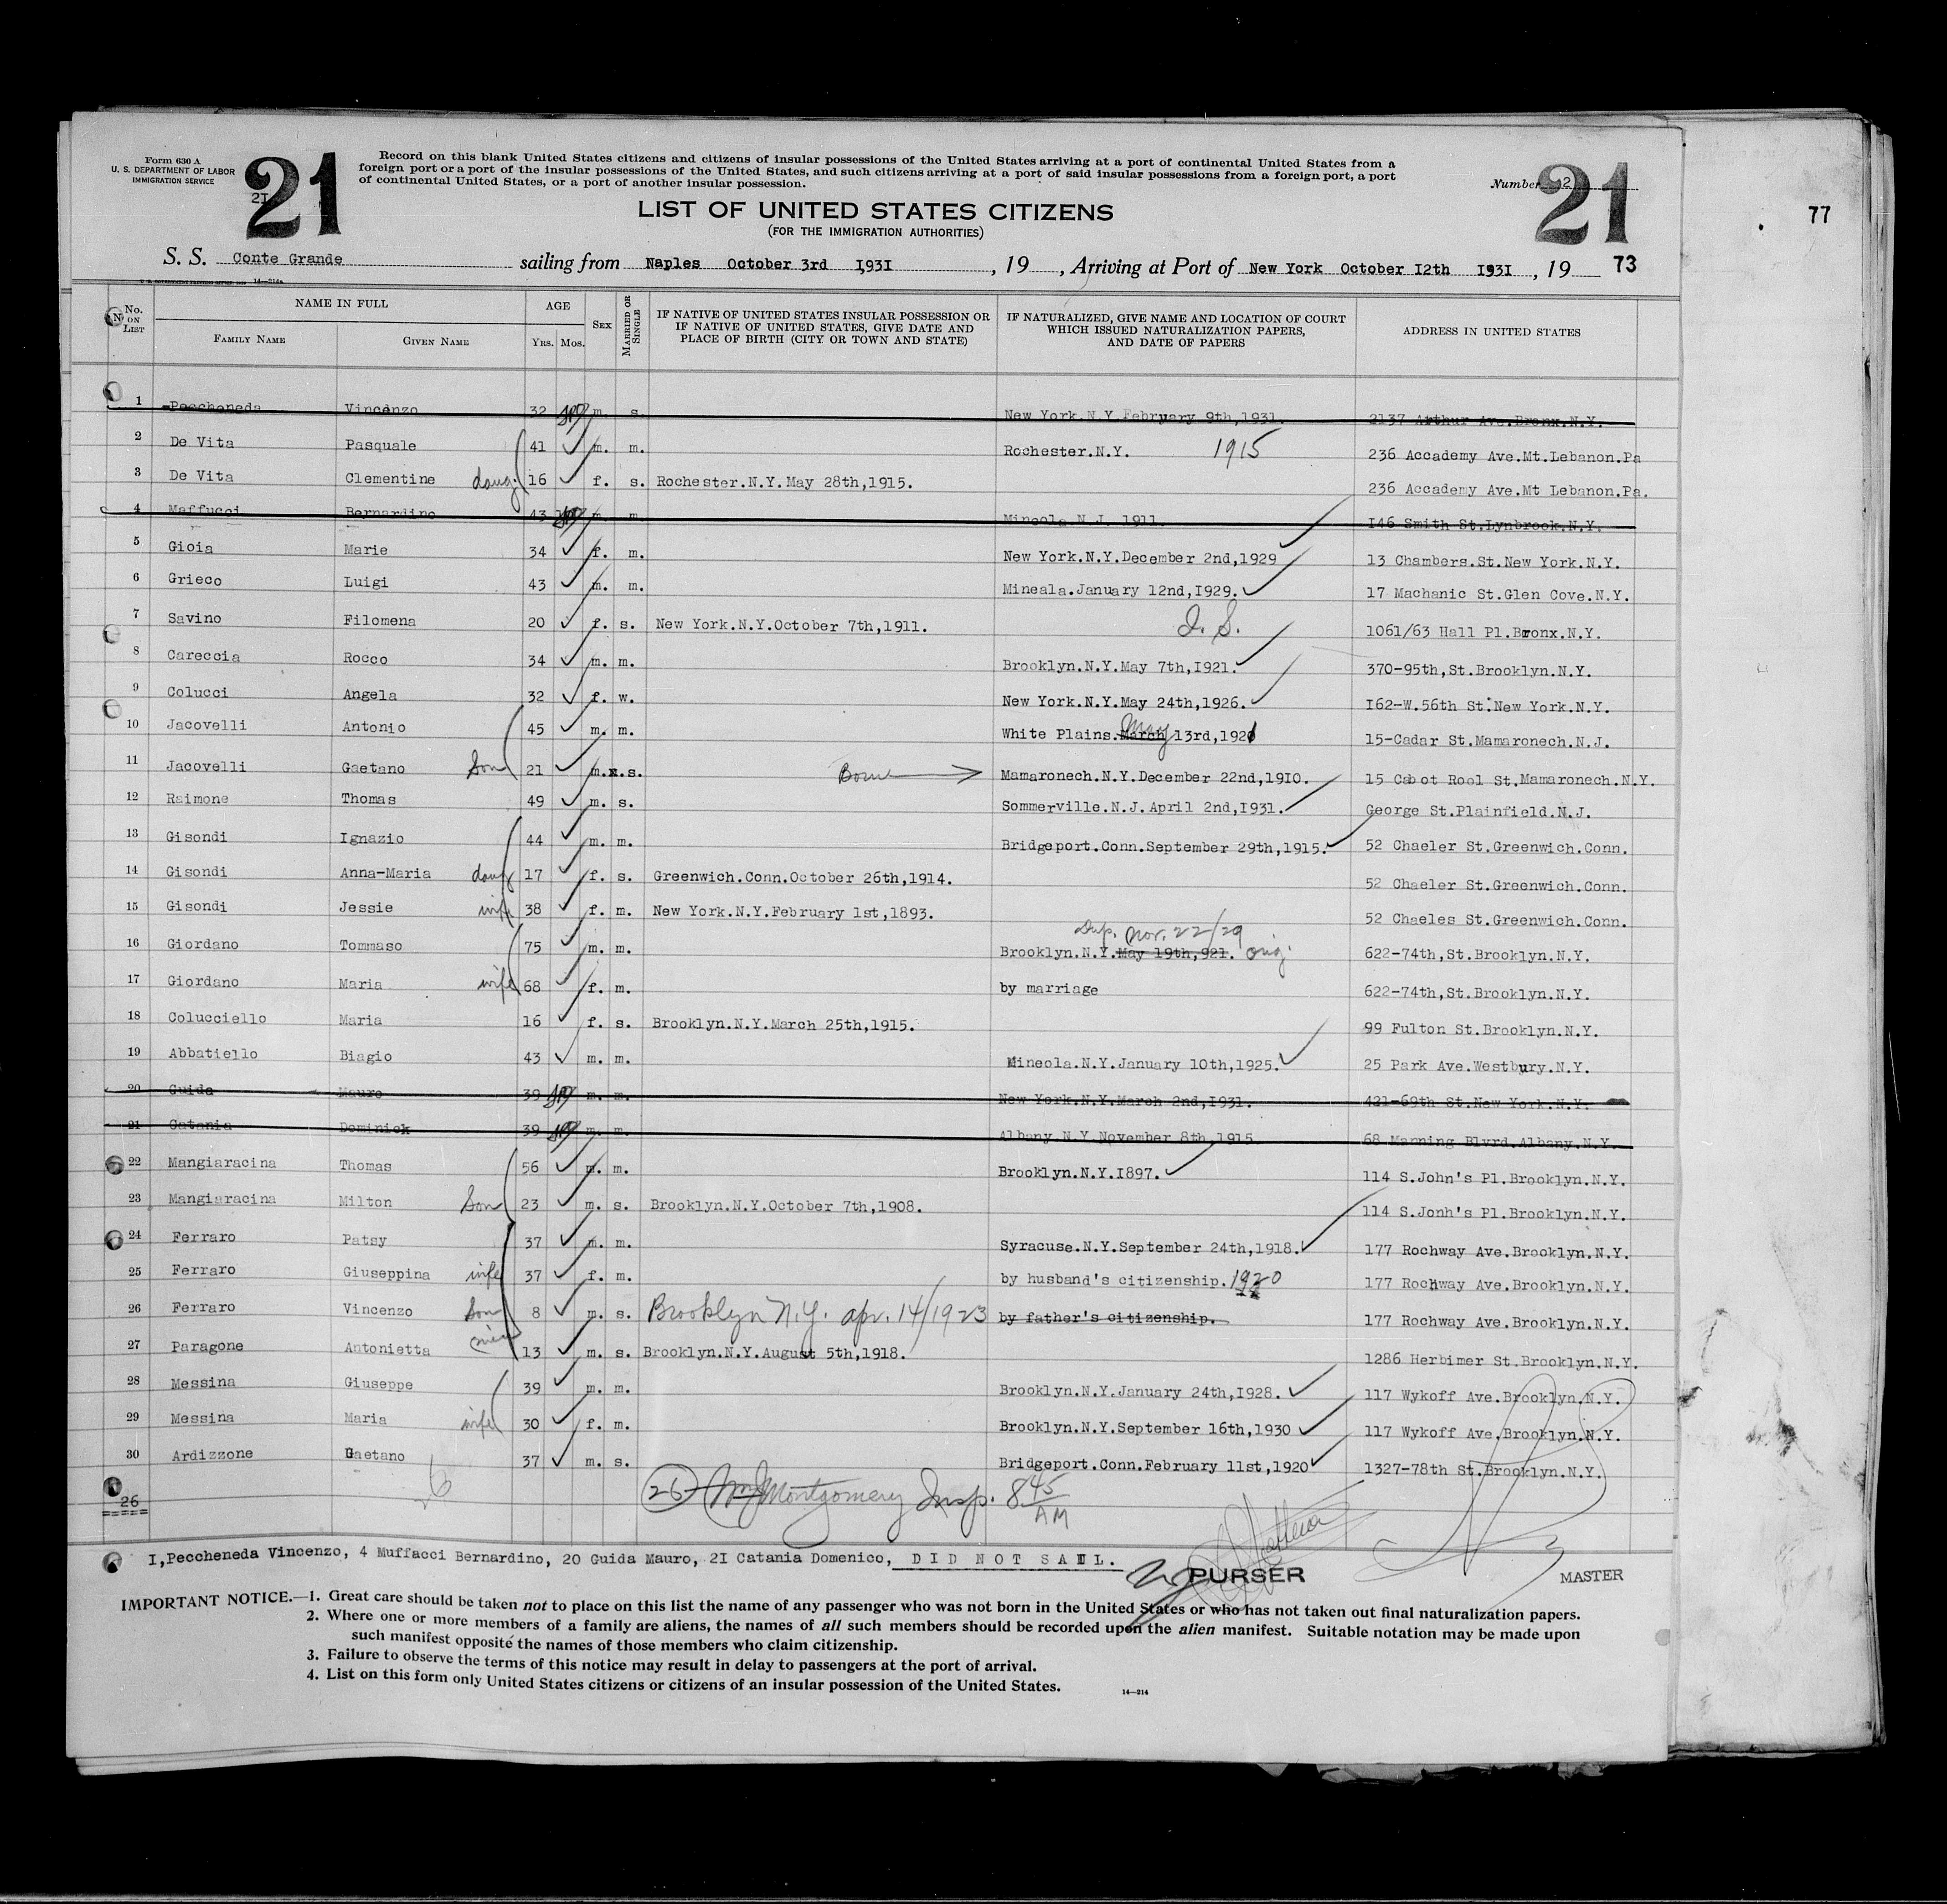 Form 630 A
U. S. DEPARTMENT OF LABOR
IMMIGRATION SERVICE
21
21
Record on this blank United States citizens and citizens of insular possessions of the United States arriving at a port of continental United States from a
foreign port or a port of the insular possessions of the United States, and such citizens arriving at a port of said insular possessions from a foreign port, a port
of continental United States, or a port of another insular possession.
Number 2
21
77
LIST OF UNITED STATES CITIZENS
(FOR THE IMMIGRATION AUTHORITIES)
S. S. Conte Grande sailing from Naples October 3rd I931, 19 , Arriving at Port of New York October I2th I931, 19 73
14-214a
No. ON LIST NAME IN FULL FAMILY NAME GIVEN NAME AGE YRS. MOS. SEX MARRIED OR SINGLE IF NATIVE OF UNITED STATES INSULAR POSSESSION OR IF NATIVE OF UNITED STATES, GIVE DATE AND PLACE OF BIRTH (CITY OR TOWN AND STATE) IF NATURALIZED, GIVE NAME AND LOCATION OF COURT WHICH ISSUED NATURALIZATION PAPERS, AND DATE OF PAPERS ADDRESS IN UNITED STATES
1 Peccheneda Vincenzo 32 m. s. New York.N.Y.February 9th,1931. 2137 Arthur Ave.Bronx.N.Y.
2 De Vita Pasquale 41 m. m. Rochester.N.Y. 1915 236 Accademy Ave.Mt.Lebanon.Pa
3 De Vita Clementine daug. 16 f. s. Rochester.N.Y.May 28th,1915. 236 Accademy Ave.Mt Lebanon.Pa.
4 Maffucci Bernardino 43 m. m. Mineola.N.J. 1911. I46 Smith St.Lynbrook.N.Y.
5 Gioia Marie 34 f. m. New York.N.Y.December 2nd,1929 13 Chambers.St.New York.N.Y.
6 Grieco Luigi 43 m. m. Mineala.January 12nd,I929. 17 Machanic St.Glen Cove.N.Y.
7 Savino Filomena 20 f. s. New York.N.Y.October 7th,1911. 1061/63 Hall Pl.Bronx.N.Y.
8 Careccia Rocco 34 m. m. Brooklyn.N.Y.May 7th,I921. 370-95th,St.Brooklyn.N.Y.
9 Colucci Angela 32 f. w. New York.N.Y.May 24th,1926. I62-W.56th St.New York.N.Y.
10 Jacovelli Antonio 45 m. m. White Plains.March May 13rd,1921 15-Cadar St.Mamaronech.N.J.
11 Jacovelli Gaetano Son 21 m.x.s. Born Mamaronech.N.Y.December 22nd,19I0. 15 Cabot Rool St.Mamaronech.N.Y.
12 Raimone Thomas 49 m. s. Sommerville.N.J.April 2nd,I931. George St.Plainfield.N.J.
13 Gisondi Ignazio 44 m. m. Bridgeport.Conn.September 29th,1915. 52 Chaeler St.Greenwich.Conn.
14 Gisondi Anna-Maria daug 17 f. s. Greenwich.Conn.October 26th,1914. 52 Chaeler St.Greenwich.Conn.
15 Gisondi Jessie wife 38 f. m. New York.N.Y.February 1st,1893. 52 Chaeles St.Greenwich.Conn.
Dup. Nov. 22/29
16 Giordano Tommaso 75 m. m. Brooklyn.N.Y.May 19th,921. orig. 622-74th,St.Brooklyn.N.Y.
17 Giordano Maria wife 68 f. m. by marriage 622-74th,St.Brooklyn.N.Y.
18 Colucciello Maria 16 f. s. Brooklyn.N.Y.March 25th,1915. 99 Fulton St.Brooklyn.N.Y.
19 Abbatiello Biagio 43 m. m. Mineola.N.Y.January 10th,1925. 25 Park Ave.Westbury.N.Y.
20 Guida Mauro 39 m. m. New York.N.Y.March 2nd,I931. 421-69th St.New York.N.Y.
21 Catania Dominick 39 m. m. Albany N.Y November 8th,1915 68 Manning Blvrd.Albany.N.Y.
22 Mangiaracina Thomas 56 m. m. Brooklyn.N.Y.I897. 114 S.John's Pl.Brooklyn.N.Y.
23 Mangiaracina Milton Son 23 m. s. Brooklyn.N.Y.October 7th,1908. 114 S.Jonh's Pl.Brooklyn.N.Y.
24 Ferraro Patsy 37 m. m. Syracuse.N.Y.September 24th,1918. 177 Rochway Ave.Brooklyn.N.Y.
25 Ferraro Giuseppina wife 37 f. m. by husband's citizenship. 1920 177 Rochway Ave.Brooklyn.N.Y.
26 Ferraro Vincenzo Son 8 m. s. Brooklyn N.Y. apr. 14/1923 by father's citizenship. 177 Rochway Ave.Brooklyn.N.Y.
27 Paragone Antonietta niece 13 m. s. Brooklyn.N.Y.August 5th,1918. 1286 Herbimer St.Brooklyn.N.Y.
28 Messina Giuseppe 39 m. m. Brooklyn.N.Y.January 24th,I928. 117 Wykoff Ave.Brooklyn.N.Y.
29 Messina Maria wife 30 f. m. Brooklyn.N.Y.September 16th,1930 117 Wykoff Ave.Brooklyn.N.Y.
30 Ardizzone Gaetano 37 m. s. Bridgeport.Conn.February 11st,1920 1327-78th St.Brooklyn.N.Y.
26 26 Montgomery Insp. 8 45 AM
I,Peccheneda Vincenzo, 4 Muffacci Bernardino, 20 Guida Mauro, 2I Catania Domenico, DID NOT SAIL.
PURSER MASTER
IMPORTANT NOTICE.—1. Great care should be taken not to place on this list the name of any passenger who was not born in the United States or who has not taken out final naturalization papers.
2. Where one or more members of a family are aliens, the names of all such members should be recorded upon the alien manifest. Suitable notation may be made upon
such manifest opposite the names of those members who claim citizenship.
3. Failure to observe the terms of this notice may result in delay to passengers at the port of arrival.
4. List on this form only United States citizens or citizens of an insular possession of the United States.
14—214